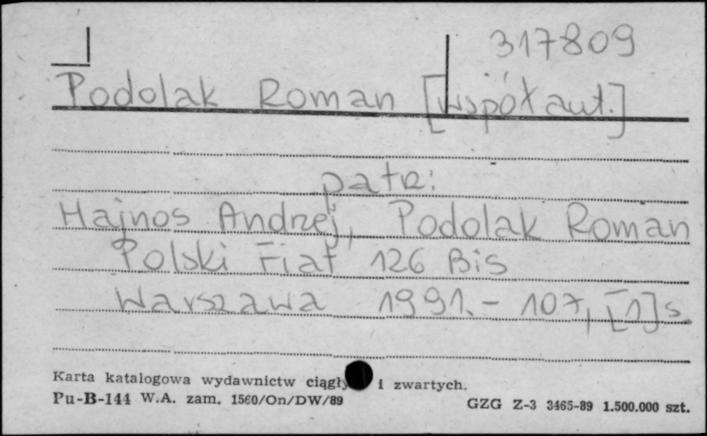 317809
Podolak Roman [współaut.]
patrz:
Hajnos Andrzej, Podolak Roman
Polski Fiat 126 Bis
Warszawa 1991. - 107, [1] s.
Karta katalogowa wydawnictw ciągły i zwartych.
Pu-B-144 W.A. zam. 1560/On/DW/89 GZG Z-3 3465-89 1.500.000 szt.